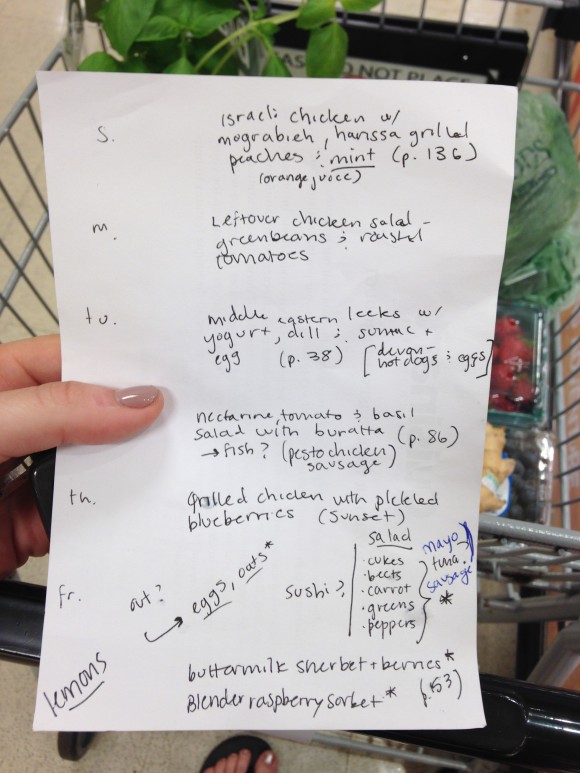 S.
Israeli chicken w/
mograbieh, harissa grilled
peaches & mint (p. 136)
(orange juice)
m.
Leftover chicken salad -
greenbeans & roasted
tomatoes
tu.
middle eastern leeks w/
yogurt, dill & sumac +
egg (p. 38) [devon-
hotdogs & eggs]
nectarine, tomato & basil
salad with buratta (p. 86)
→ fish? (pesto chicken
sausage)
th.
Grilled chicken with pickled
blueberries (sunset)
Fr.
out?
→ eggs, oats*
sushi?
salad
· cukes
· beets
· carrot
· greens
· peppers
*
mayo
tuna?
sausage
lemons
buttermilk sherbet + berries*
Blender raspberry sorbet* (p. 153)
NOT PLACE